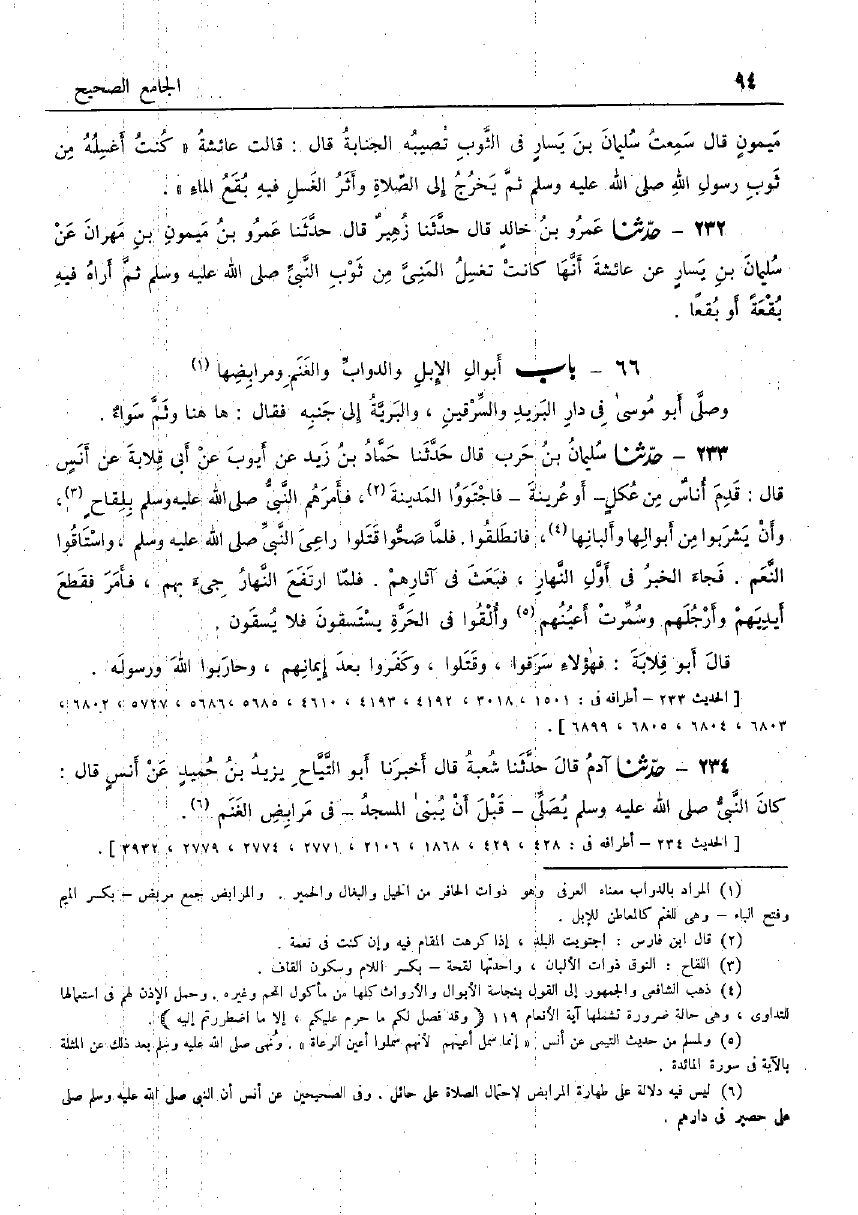 ٩٤
الجامع الصحيح
مَيمونٍ قال سَمِعتُ سُليمانَ بنَ يَسارٍ فى الثَّوبِ تُصيبُه الجنابةُ قال : قالت عائشةُ « كُنتُ أَغسِلُهُ مِن
ثَوبِ رسولِ اللهِ صلى الله عليه وسلم ثمَّ يَخرُجُ إلى الصَّلاةِ وأَثَرُ الغَسلِ فيهِ بُقَعُ الماءِ » .
٢٣٢ - حدّثنا عَمرُو بنُ خالدٍ قال حدَّثَنا زُهيرٌ قال حدَّثَنا عمرُو بنُ مَيمونِ بنِ مَهرانَ عَنْ
سُليمانَ بنِ يَسارٍ عن عائشةَ أنَّها كانتْ تغسِلُ المَنِىَّ مِن ثَوْبِ النَّبىِّ صلى الله عليه وسلم ثمَّ أراهُ فيهِ
بُقْعَةً أو بُقعًا .
٦٦ - باب أبوالِ الإبلِ والدوابِّ والغَنَمِ ومرابِضِها (١)
وصلَّى أبو مُوسىٰ فِى دارِ البَريدِ والسِّرْقينِ ، والبَريَّةُ إلى جَنبِه فقال : ها هنا وثَمَّ سَواءٌ .
٢٣٣ - حدّثنا سُليمانُ بنُ حَربٍ قال حَدَّثَنا حَمَّادُ بنُ زَيد عن أيوبَ عَنْ أبى قِلابةَ عن أنَسٍ
قال : قَدِمَ أُناسٌ مِن عُكلٍ- أو عُرينةَ - فاجْتَوَوُا المَدينةَ (٢)، فأمرَهُم النَّبىُّ صلى الله عليه وسلم بِلِقاحٍ (٣)،
وأنْ يَشرَبوا مِن أبوالِها وألبانِها (٤)، فانطَلَقوا . فلمَّا صَحُّوا قَتَلوا راعِىَ النَّبىِّ صلى الله عليه وسلم ، واسْتَاقُوا
النَّعَم . فَجاءَ الخبرُ فى أوَّلِ النَّهارِ ، فبَعَثَ فى آثارِهِمْ . فلمّا ارتَفَعَ النَّهارُ جِىءَ بهم ، فأمَرَ فقطَعَ
أيدِيَهمْ وأرْجُلَهم وسُمِّرتْ أعيُنُهم (٥) وأُلْقُوا فى الحَرَّةِ يسْتَسقونَ فلا يُسقَون .
قالَ أبو قِلابَةَ : فهٰؤلاءِ سَرَقوا ، وقَتَلوا ، وكَفَروا بعدَ إيمانِهم ، وحارَبوا اللهَ ورسولَه .
[ الحديث ٢٣٣ - أطرافه فى : ١٥٠١ ، ٣٠١٨ ، ٤١٩٢ ، ٤١٩٣ ، ٤٦١٠ ، ٥٦٨٥ ، ٥٦٨٦ ، ٥٧٢٧ ، ٦٨٠٢ ،
٦٨٠٣ ، ٦٨٠٤ ، ٦٨٠٥ ، ٦٨٩٩ ] .
٢٣٤ - حدّثنا آدمُ قالَ حدَّثَنا شُعبةُ قال أخبرَنا أبو التَّيَّاحِ يزيدُ بنُ حُميدٍ عَنْ أنسٍ قال :
كانَ النَّبىُّ صلى الله عليه وسلم يُصَلِّى - قَبْلَ أنْ يُبنىٰ المسجدُ - فى مَرابِضِ الغَنَم (٦).
[ الحديث ٢٣٤ - أطرافه فى : ٤٢٨ ، ٤٢٩ ، ١٨٦٨ ، ٢١٠٦ ، ٢٧٧١ ، ٢٧٧٤ ، ٢٧٧٩ ، ٣٩٣٢ ] .
(١) المراد بالدواب معناه العرفى وهو ذوات الحافر من الخيل والبغال والحمير . والمرابض جمع مربض - بكسر الميم
وفتح الباء - وهى للغنم كالمعاطن للإبل .
(٢) قال ابن فارس : اجتويت البلد ، إذا كرهت المقام فيه وإن كنت فى نعمة .
(٣) اللقاح : النوق ذوات الألبان ، واحدتها لقحة - بكسر اللام وسكون القاف .
(٤) ذهب الشافعى والجمهور إلى القول بنجاسة الأبوال والأرواث كلها من مأكول اللحم وغيره . وحمل الإذن لهم فى استعمالها
للتداوى ، وهى حالة ضرورة تشملها آية الأنعام ١١٩ ﴿ وقد فصل لكم ما حرم عليكم ، إلا ما اضطررتم إليه ﴾ .
(٥) ولمسلم من حديث التيمى عن أنس : « إنما سمل أعينهم لأنهم سملوا أعين الرعاة » . ونُهى صلى الله عليه وسلم بعد ذلك عن المثلة
بالآية فى سورة المائدة .
(٦) ليس فيه دلالة على طهارة المرابض لاحتمال الصلاة على حائل . وفى الصحيحين عن أنس أن النبى صلى الله عليه وسلم صلى
على حصير فى دارهم .